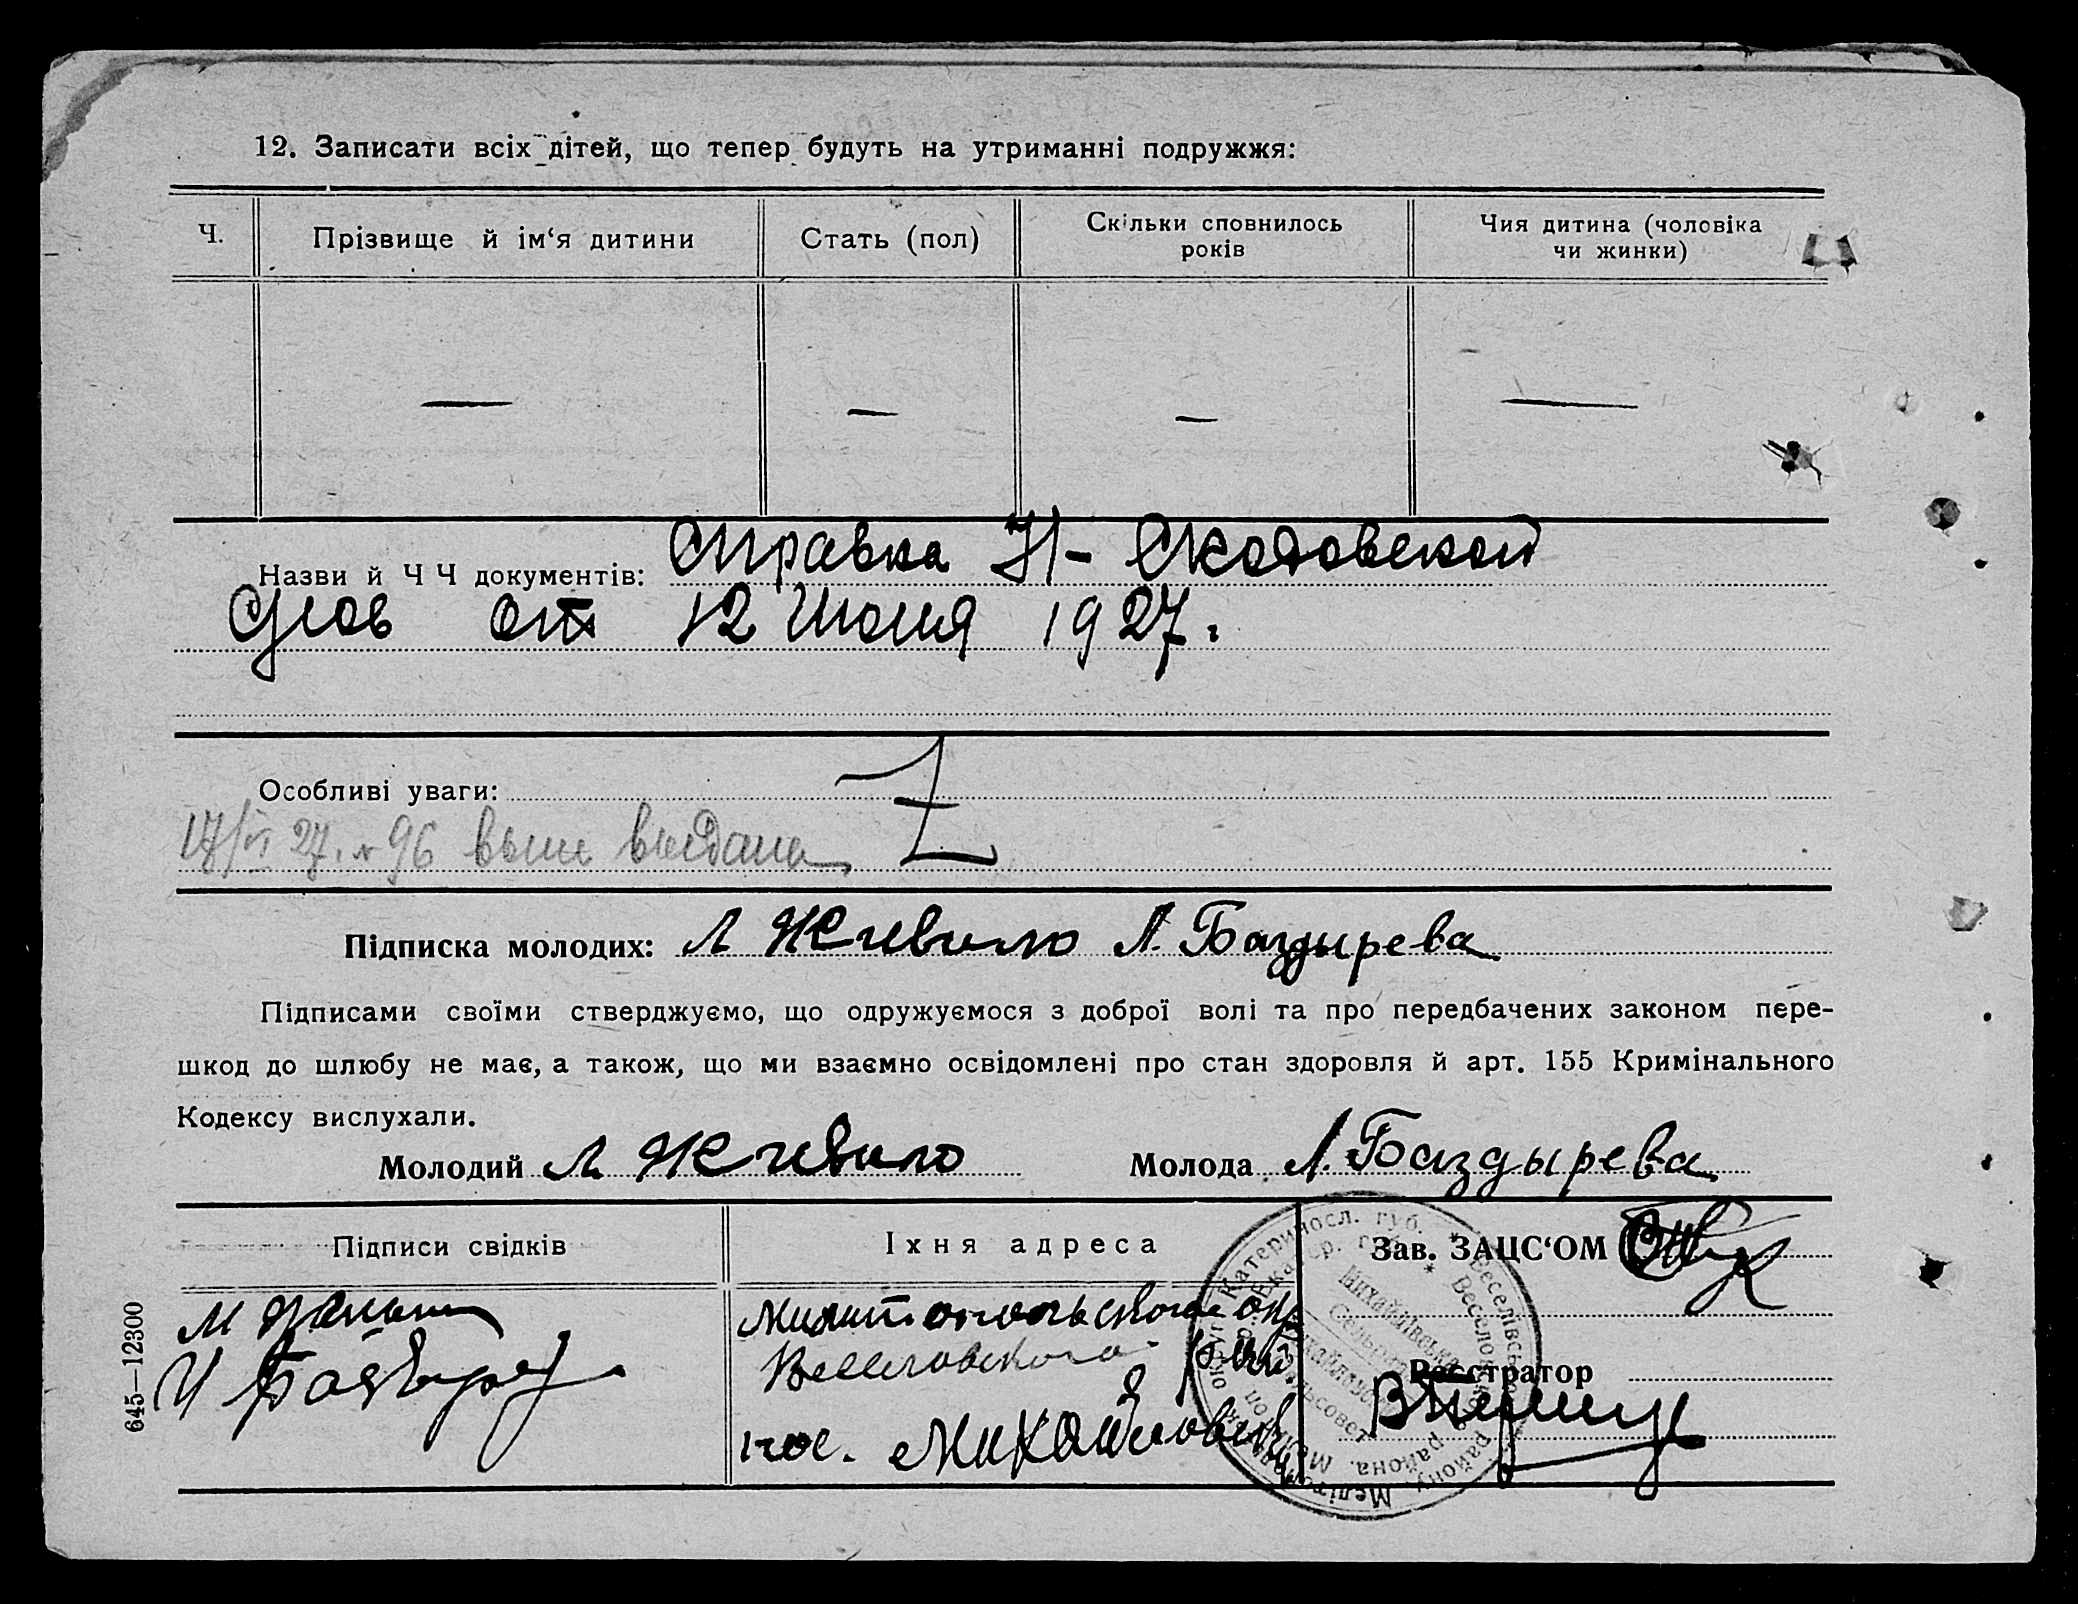 12. Записати всіх дітей, що тепер будуть на утриманні подружжя:
Ч.
Прізвище й ім‘я дитини
Стать (пол)
Скільки сповнилось років
Чия дитина (чоловіка чи жинки)
— — — —
Назви й Ч Ч документів: Справка Н- Скотовской
от 12 Июня 1927.
Особливі уваги:
17/VI 27. № 96 выдана
Підписка молодих: Л Живило Л. Баздырева
Підписами своїми стверджуємо, що одружуємося з доброї волі та про передбачених законом пере-
шкод до шлюбу не має, а також, що ми взаємно освідомлені про стан здоровля й арт. 155 Кримінального
Кодексу вислухали.
Молодий Л Живило Молода Л. Баздырева
Підписи свідків
Їхня адреса
Зав. ЗАЦС‘ОМ
Мелитопольского окр
Веселовского
пос. Михайловка
Реєстратор
Катериносл. губ. * Веселівського району, Меліт
Михайлівська
645—12300